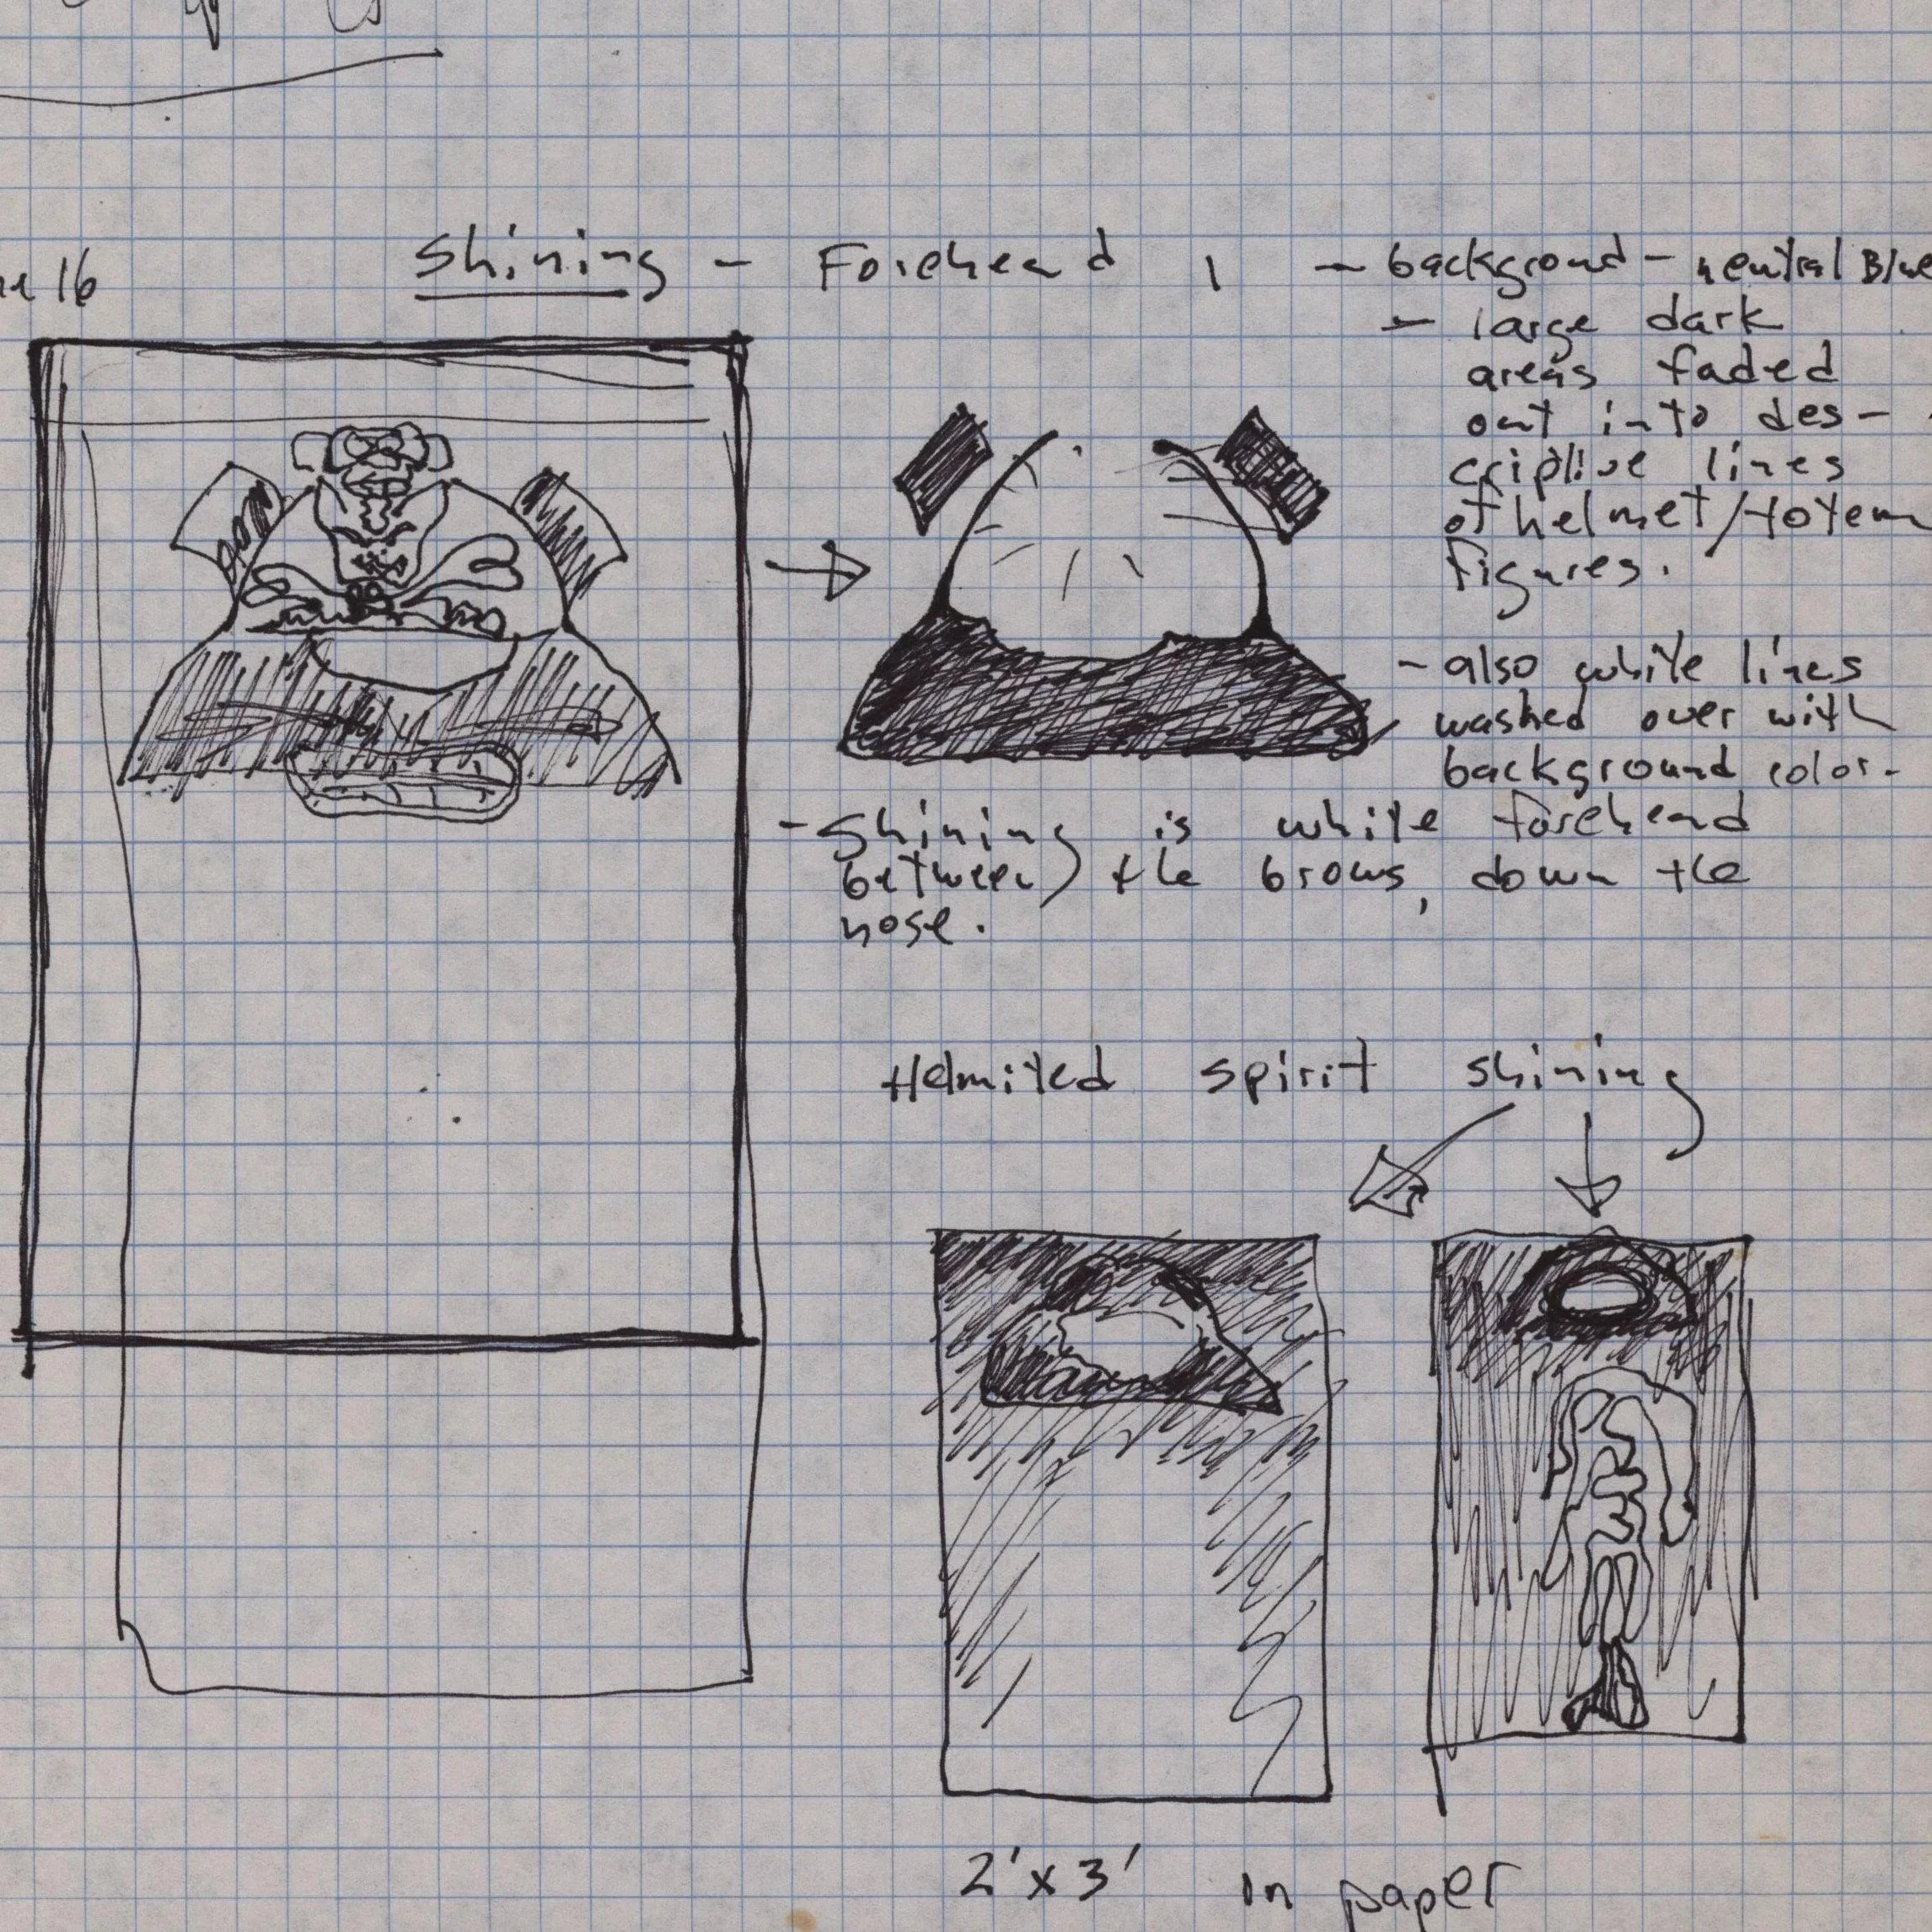 16
Shining - Forehead
- background - neutral Blue
- large dark
areas faded
out into des-
criptive lines
of helmet/totem
figures.
- also white lines
washed over with
background color.
- Shining is white forehead
between the brows, down the
nose.
Helmited spirit shining
2'x3' in paper